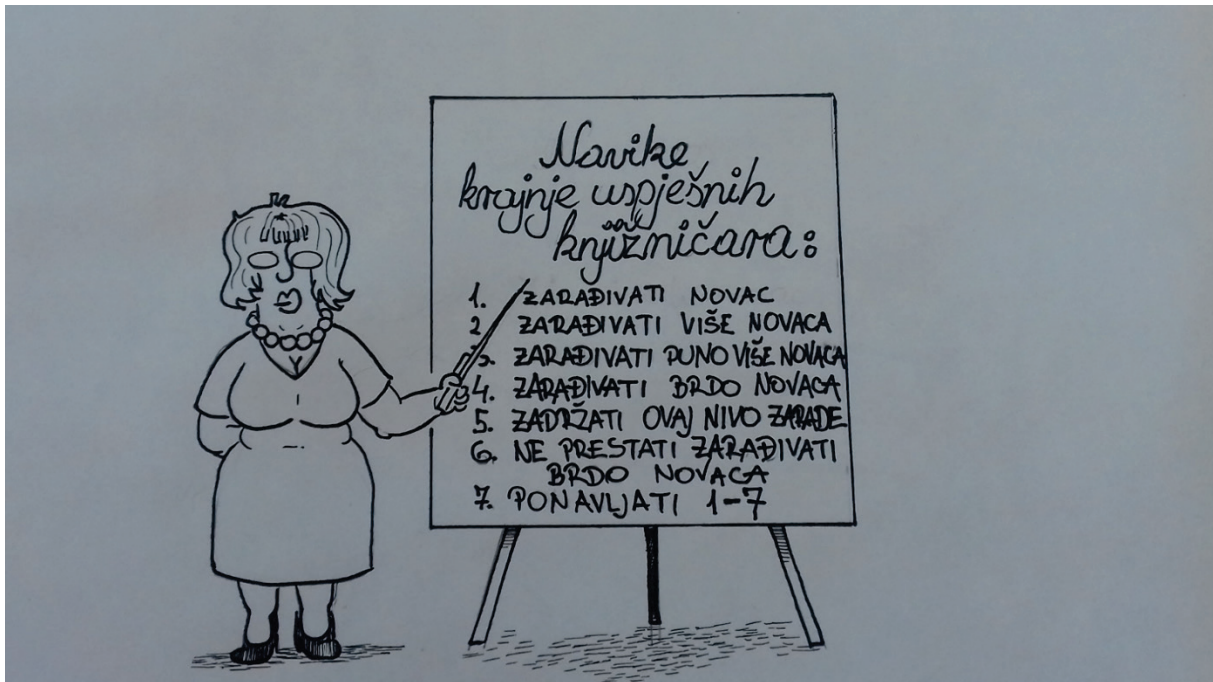 Navike
krajnje uspješnih
knjižničara:
1. ZARAĐIVATI NOVAC
2 ZARAĐIVATI VIŠE NOVACA
3. ZARAĐIVATI PUNO VIŠE NOVACA
4. ZARAĐIVATI BRDO NOVACA
5. ZADRŽATI OVAJ NIVO ZARADE
6. NE PRESTATI ZARAĐIVATI
BRDO NOVACA
7. PONAVLJATI 1-7